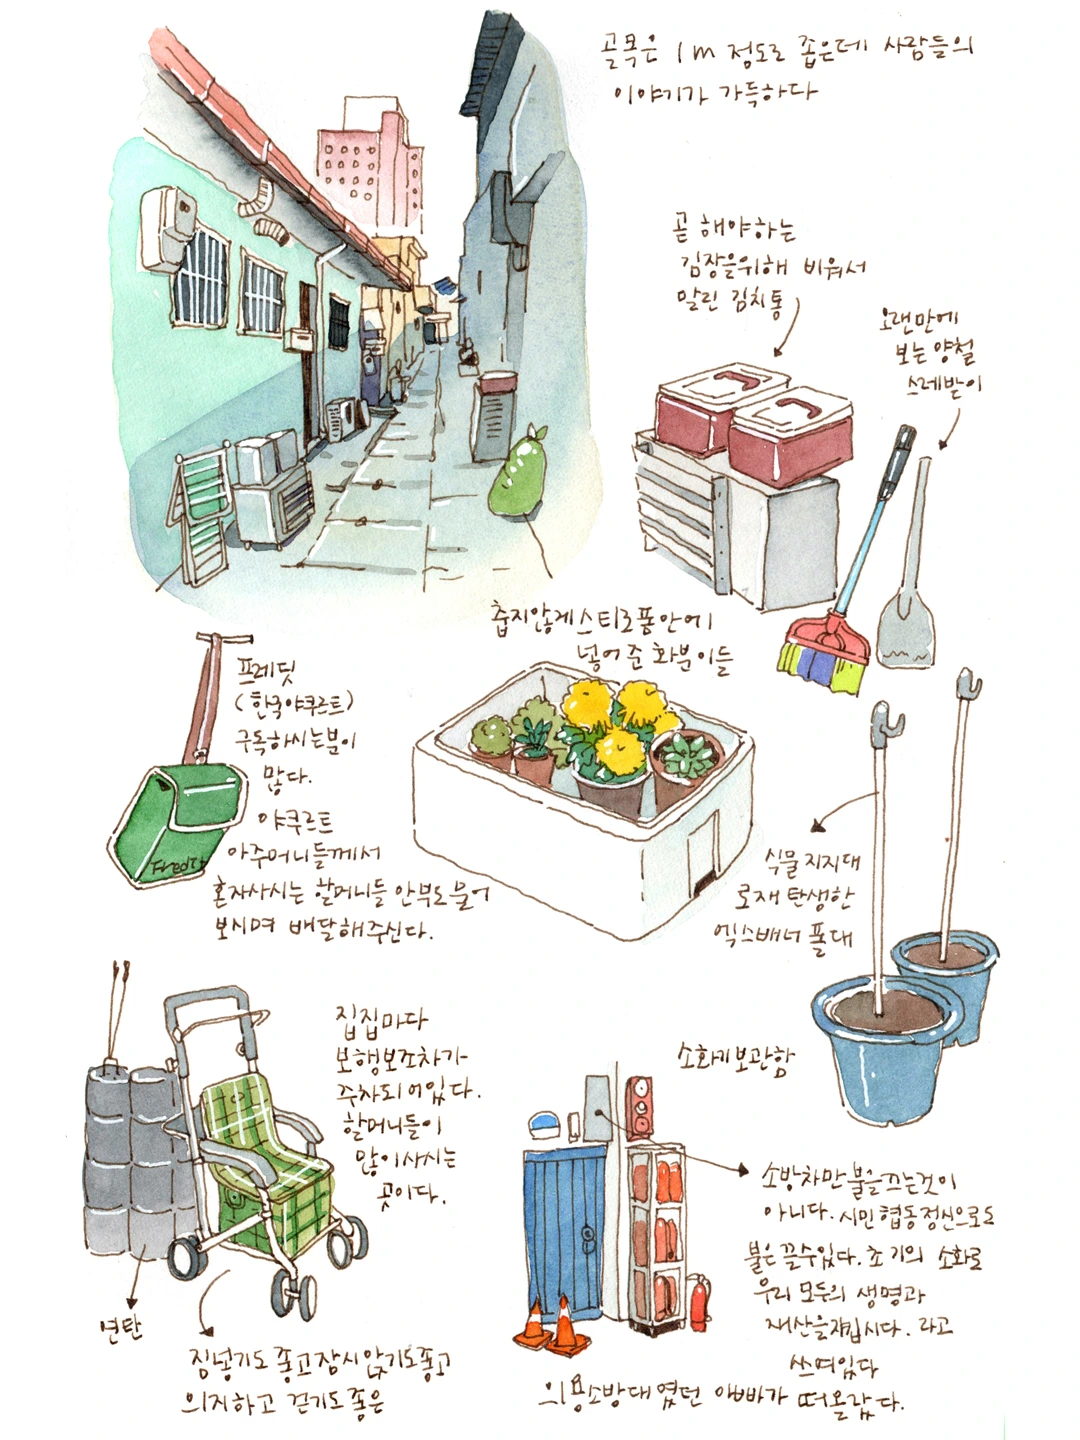 골목은 1m 정도로 좁은데 사람들의
이야기가 가득하다
곧 해야하는
김장을위해 비워서
말린 김치통
오랜만에
보는 양철
스레받이
춥지않게 스티로폼 안에
넣어 준 화분이들
프레딧
(한국야쿠르트)
구독하시는분이
많다.
야쿠르트
아주머니들께서
혼자사시는 할머니들 안부도 물어
보시며 배달해주신다.
Fredit
식물 지지대
로 재탄생한
엑스배너 폴대
집집마다
보행보조차가
주차되어있다.
할머니들이
많이사시는
곳이다.
소화기보관함
소방차만 불을끄는것이
아니다. 시민 협동정신으로도
불은 끌수있다. 초기의 소화로
우리 모두의 생명과
재산을지킵시다. 라고
쓰여있다
의용소방대였던 아빠가 떠올랐다.
연탄
짐넣기도 좋고 잠시앉기도좋고
의지하고 걷기도 좋은